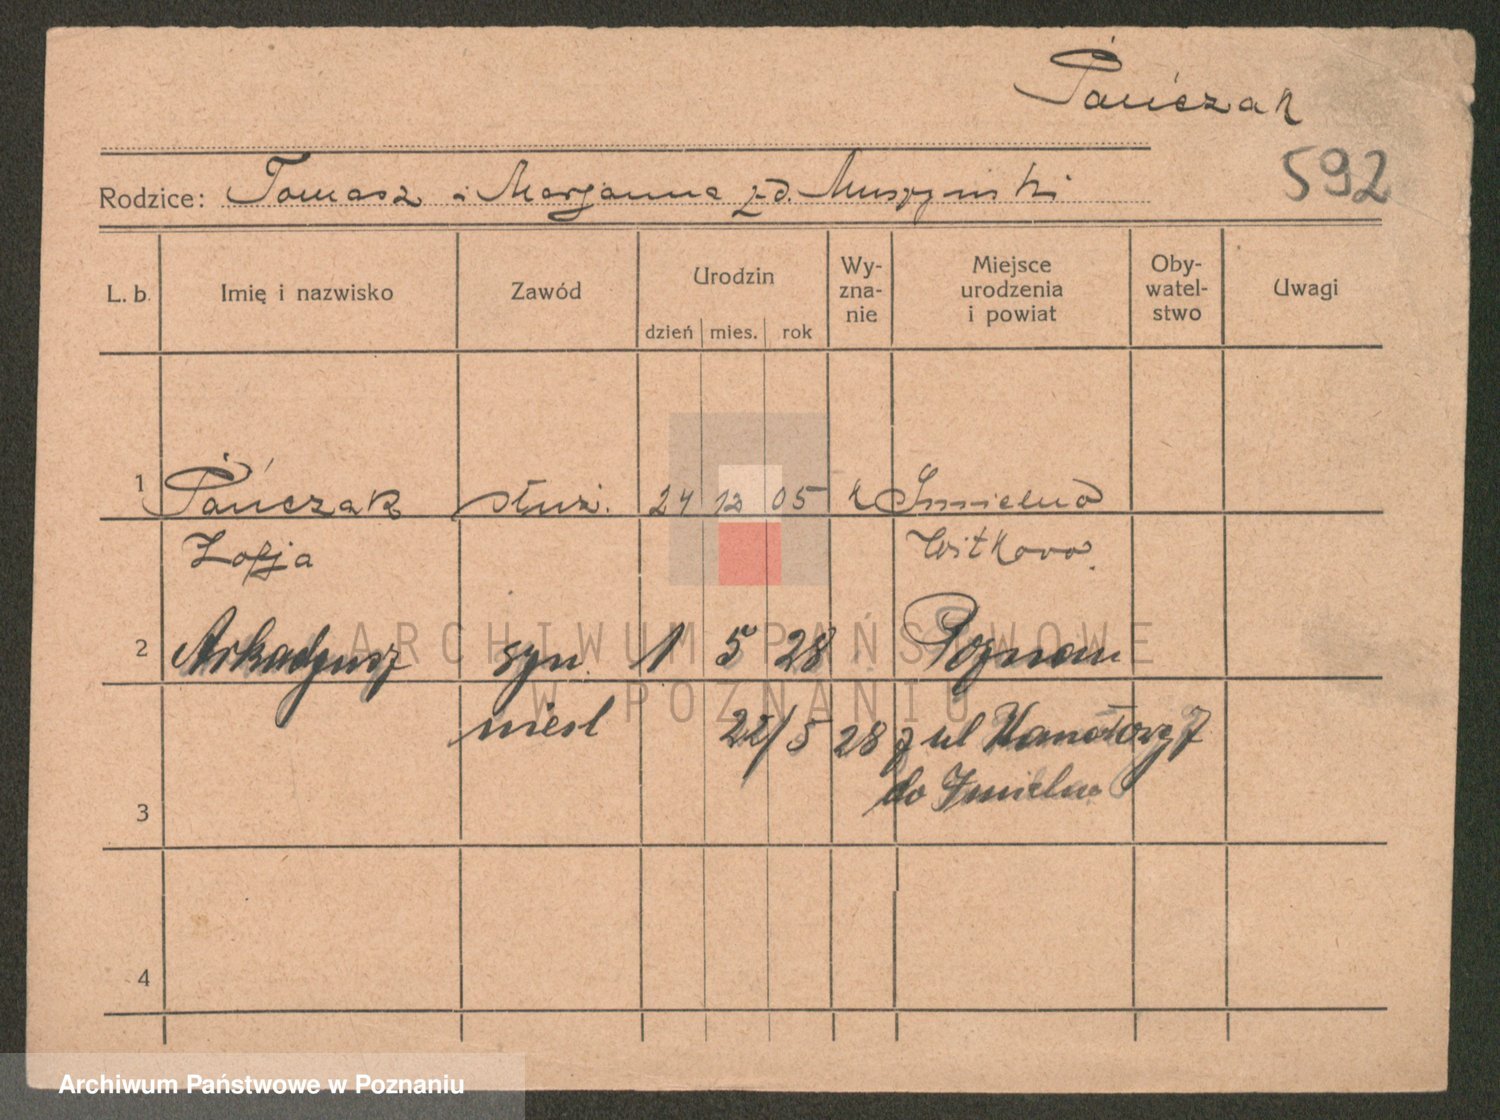 Pańczak
592
Rodzice: Tomasz i Marjanna zd. Muszyński
L. b. Imię i nazwisko Zawód Urodzin dzień mies. rok Wy-zna-nie Miejsce urodzenia i powiat Oby-watel-stwo Uwagi
1 Pańczak służ. 24 12 05 k Imielno
Zofja Witkowo.
2 Arkadjusz syn 1 5 28 Poznań
nieśl 22/5 28 z ul 7
do Imielna
3
4
ARCHIWUM PAŃSTWOWE
W POZNANIU
Archiwum Państwowe w Poznaniu